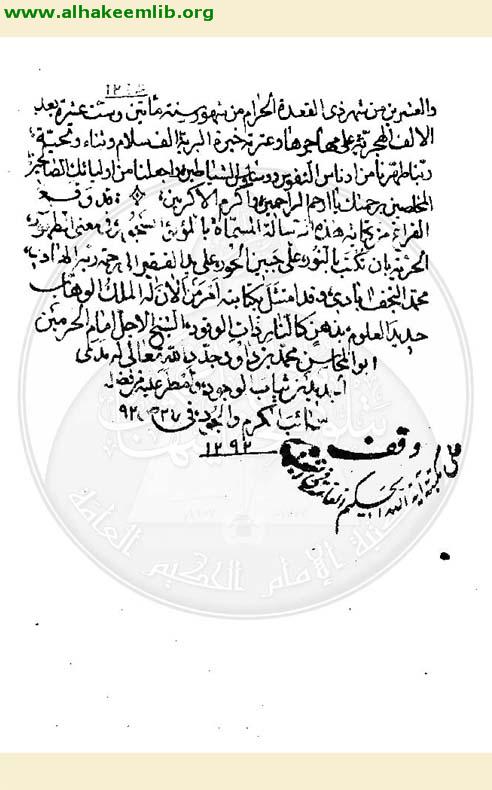 www.alhakeemlib.org
١٢١٦
والعشرين من شهر ذى القعدة الحرام من شهور سنة مأتين وست عشرة بعد
الالف الهجرية على مهاجرها وعترته خيرة البرية الف سلام وثناء وتحية
ربنا طهرنا من ادناس النفوس ووساوس الشياطين واجعلنا من اوليائك الصالحين
المخلصين برحمتك يا ارحم الراحمين ويا اكرم الاكرمين قد وقع
الفراغ من كتابة هذه الرسالة المسماة فى معنى الطهور
الحرية بان تكتب بالنور على جبين الحور على يد الفقير الى رحمة ربه الهادى
محمد النجف ابادى وقد امتثل بكتابته امر من ألان له الملك الوهاب
حديد العلوم بذهن كالنار ذات الوقود الشيخ الاجل امام الحرمين
ابو المحاسن محمد بن داود جدد الله تعالى
ثياب الوجود وأمطر عليه من فضله
سحائب الكرم والجود فى ٩٢
١٢٩٢
وقف
على مكتبة آية الله الحكيم العامة
مكتبة الإمام الحكيم العامة